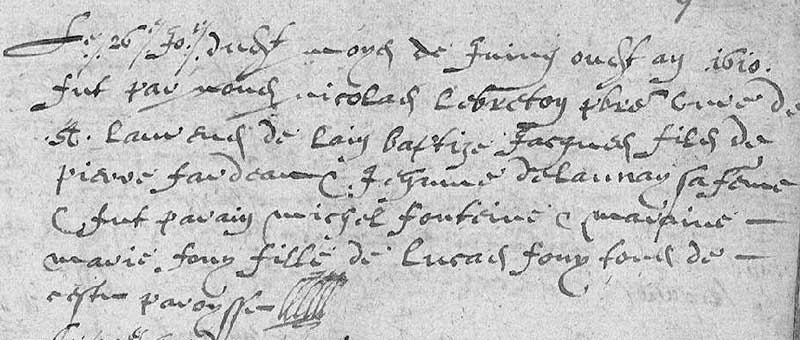 Le 26e Jor dudict moys de Juing oudict an 1610
fut par nous nicolas Lebreton pbre Curé de
St. Laurens de Lain baptizé Jacques filz de
pierre fardeau & Jehanne delaunay sa feme
& fut parain michel fonteine & maraine
marie fouy fille de Lucas fouy tous de
ceste paroysse